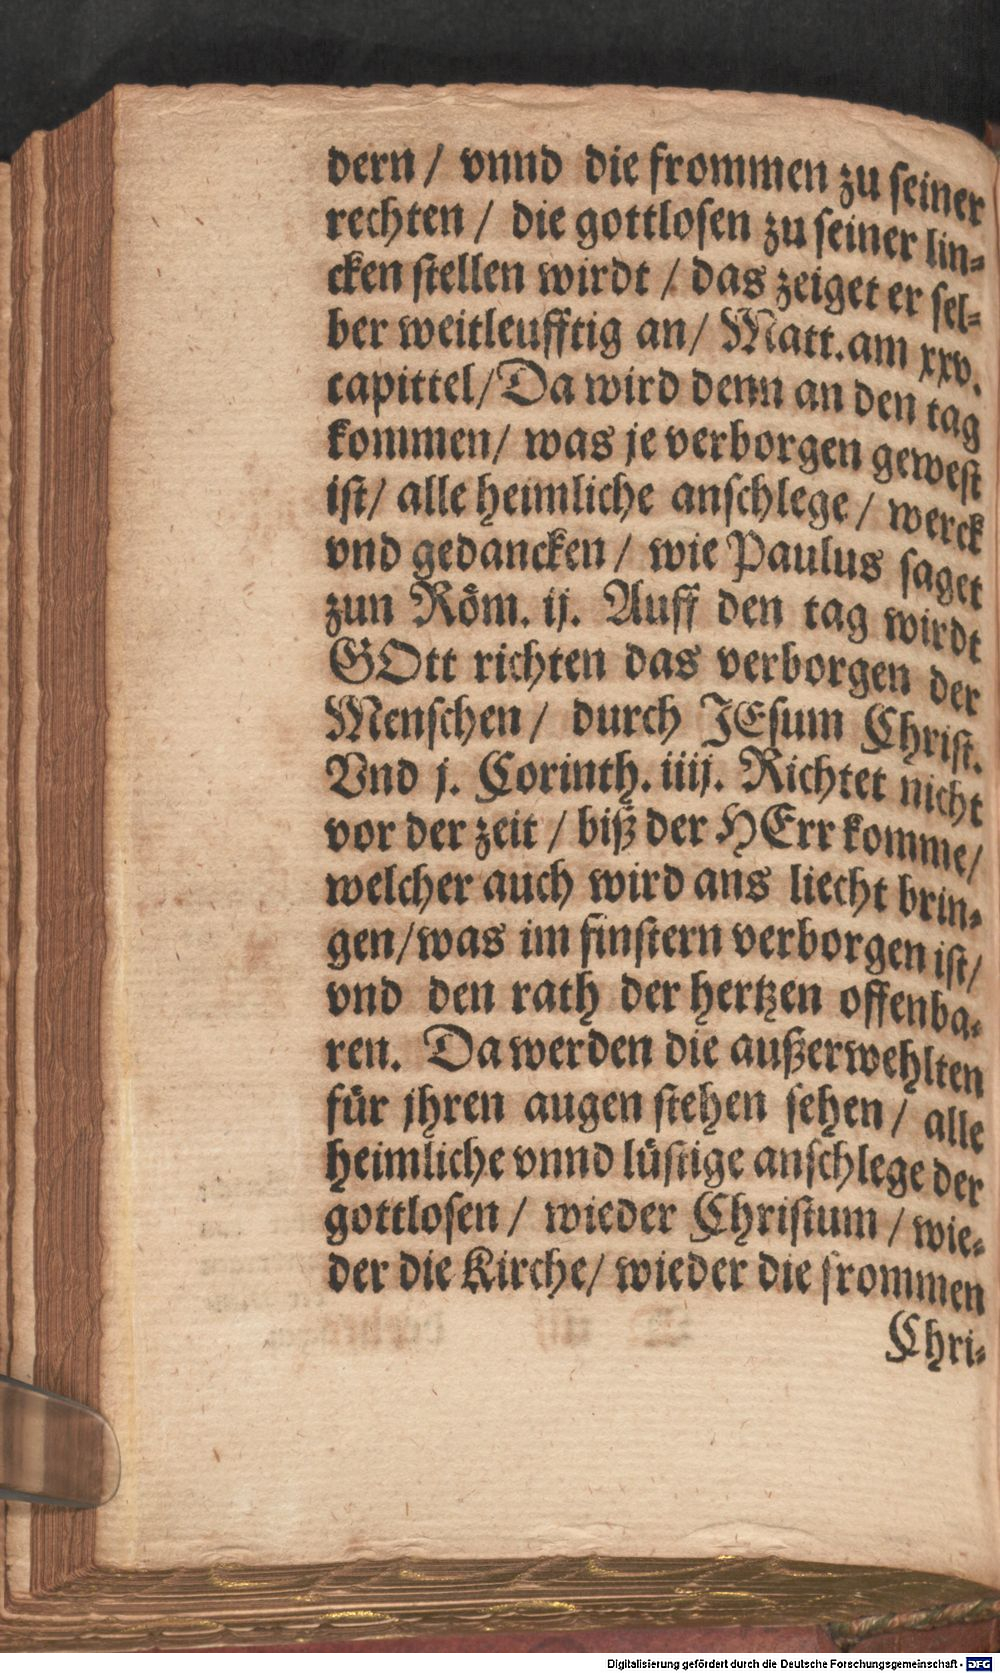 dern / vnnd die frommen zu seiner
rechten / die gottlosen zu seiner lin-
cken stellen wirdt / das zeiget er sel-
ber weitleufftig an / Matt. am xxv.
capittel / Da wird denn an den tag
kommen / was je verborgen gewest
ist / alle heimliche anschlege / werck
vnd gedancken / wie Paulus saget
zun Röm. ij. Auff den tag wirdt
GOtt richten das verborgen der
Menschen / durch JEsum Christ.
Vnd j. Corinth. iiij. Richtet nicht
vor der zeit / biß der HErr komme /
welcher auch wird ans liecht brin-
gen / was im finstern verborgen ist /
vnd den rath der hertzen offenba-
ren. Da werden die außerwehlten
für jhren augen stehen sehen / alle
heimliche vnnd lüstige anschlege der
gottlosen / wieder Christum / wie-
der die Kirche / wieder die frommen
Chri-
Digitalisierung gefördert durch die Deutsche Forschungsgemeinschaft - DFG